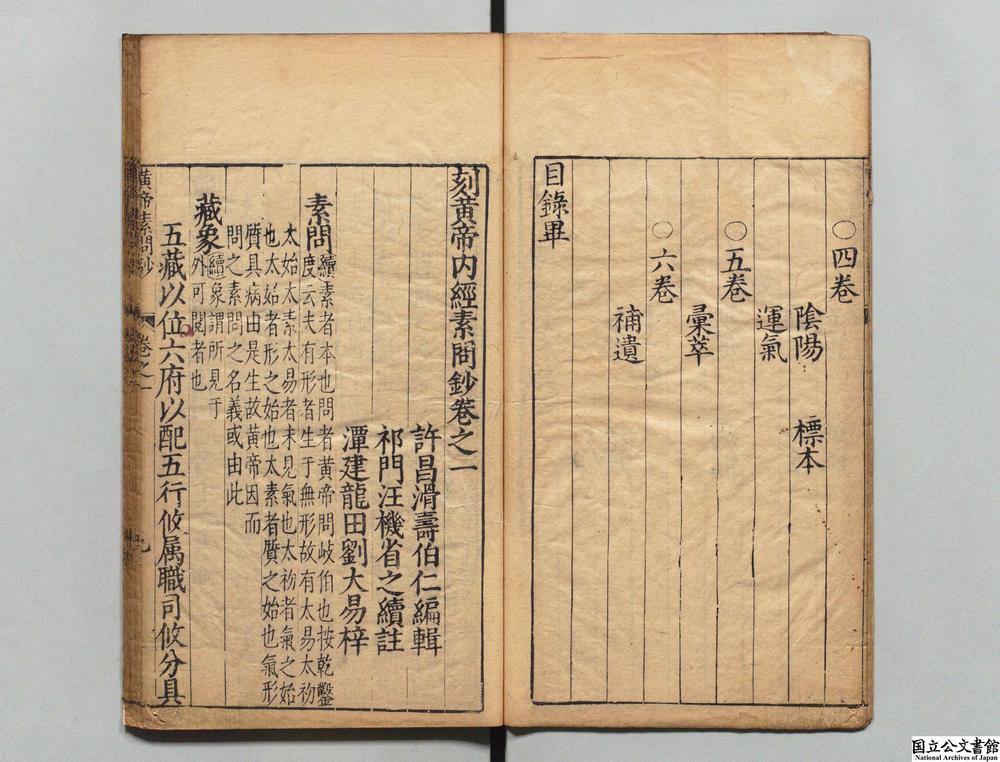 〇四卷
陰陽 標本
運氣
〇五卷
彙萃
〇六卷
補遺
目錄畢
刻黃帝内經素問鈔卷之一
許昌滑壽伯仁編輯
祁門汪機省之續註
潭建龍田劉大易梓
素問續素者本也問者黃帝問岐伯也按乾鑿
度云夫有形者生于無形故有太易太初
太始太素太易者未見氣也太初者氣之始
也太始者形之始也太素者質之始也氣形
質具病由是生故黃帝因而
問之素問之名義或由此
藏象續象謂所見于
外可閱者也
五藏以位六府以配五行攸属職司攸分具
黃帝素問鈔
卷之一
国立公文書館
National Archives of Japan